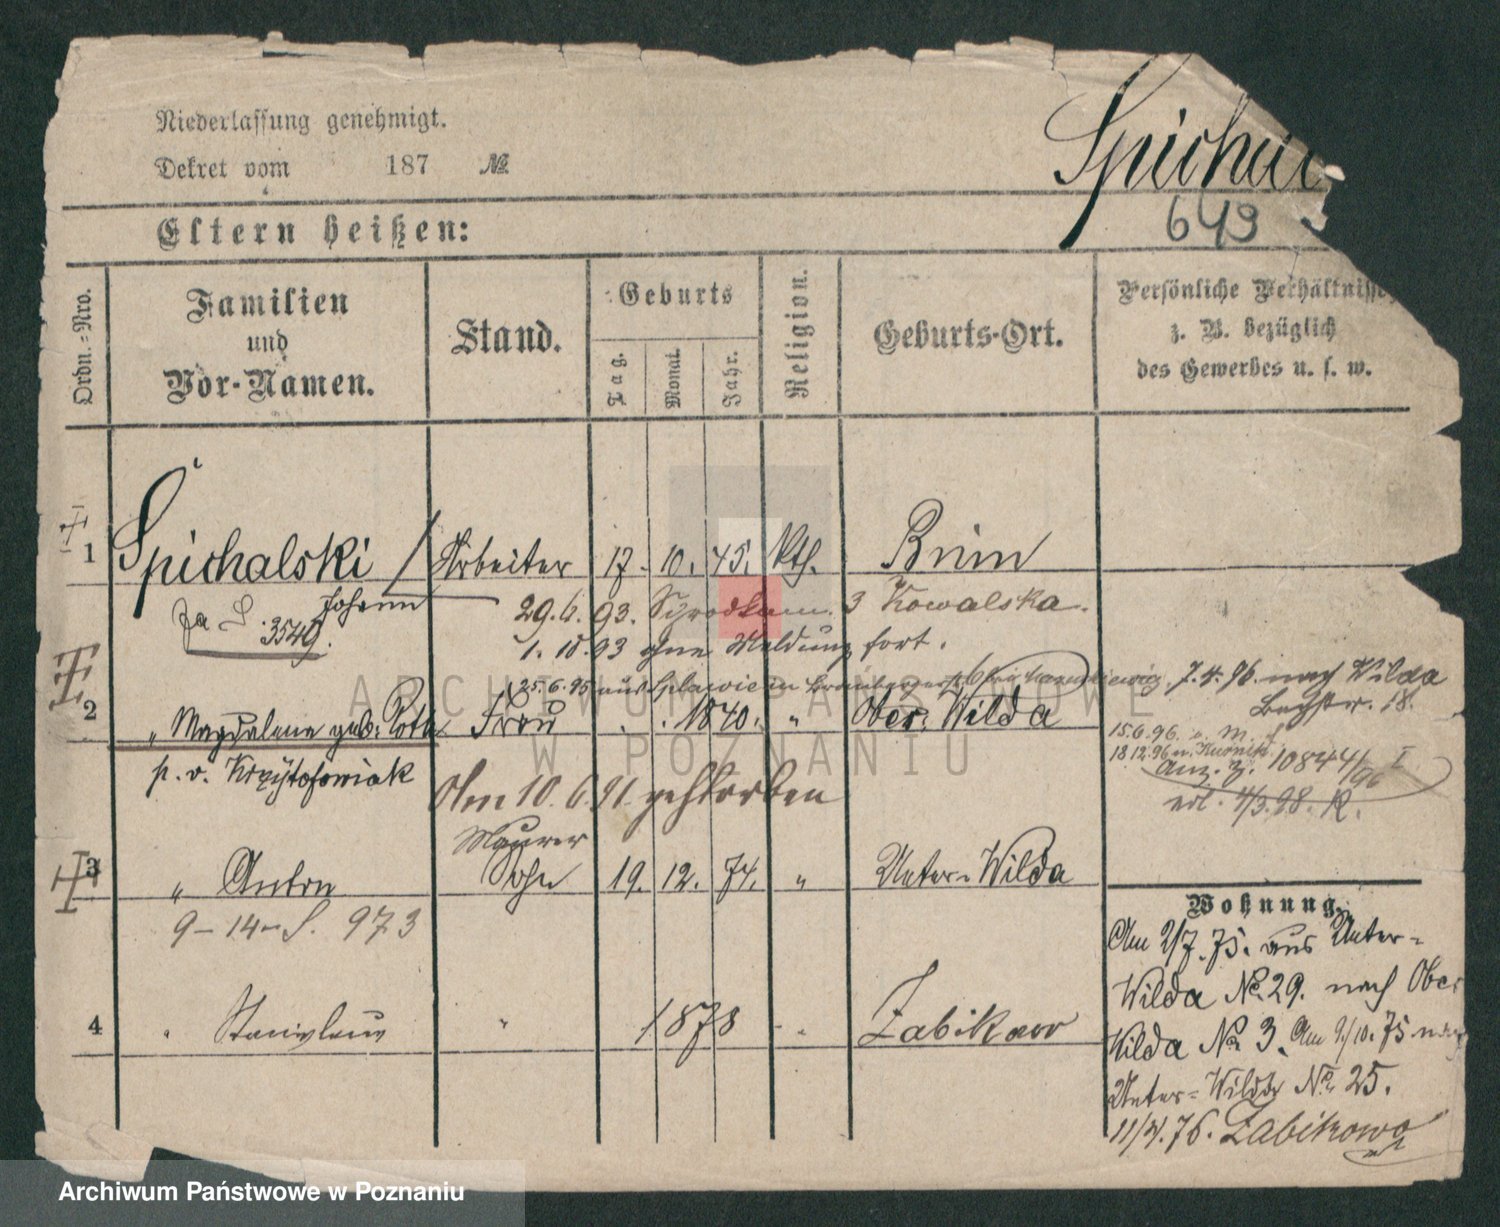 Niederlassung genehmigt.
Dekret vom 187 №
Spichal
649
Eltern heißen:
Ordn.-Nro.
Familien und Vor-Namen.
Stand.
Geburts
Tag.
Monat.
Jahr.
Religion.
Geburts-Ort.
Persönliche Verhältnisse,
z. B. bezüglich
des Gewerbes u. s. w.
1 Spichalski Arbeiter 17. 10. 45. kth. Brim
Johann
3549.
29.6.93. 3 Kowalska.
1. 10. 93 ohne Meldung fort.
25.6.95 aus
7.4.96. nach Wilda
18.
2 " Magdalena geb. Roth Frau 1840. " Ober-Wilda
p. v. Krzyżtofowiak
15.6.96.
18.12.96
Anz. z. 10844/96 I
4/3.98. R.
Am 10.6.91. gestorben
Maurer
3 " Anton Sohn 19. 12. 74. " Unter-Wilda
9-14- S. 973
Wohnung.
Am 2/7. 75. aus Unter-
Wilda № 29. nach Ober
Wilda № 3. Am 9/10. 75 nach
Unter-Wilda № 25.
11/4. 76. Zabikowo
4 " Stanislaus " 1878 " Zabikowo
ARCHIWUM PAŃSTWOWE
W POZNANIU
Archiwum Państwowe w Poznaniu